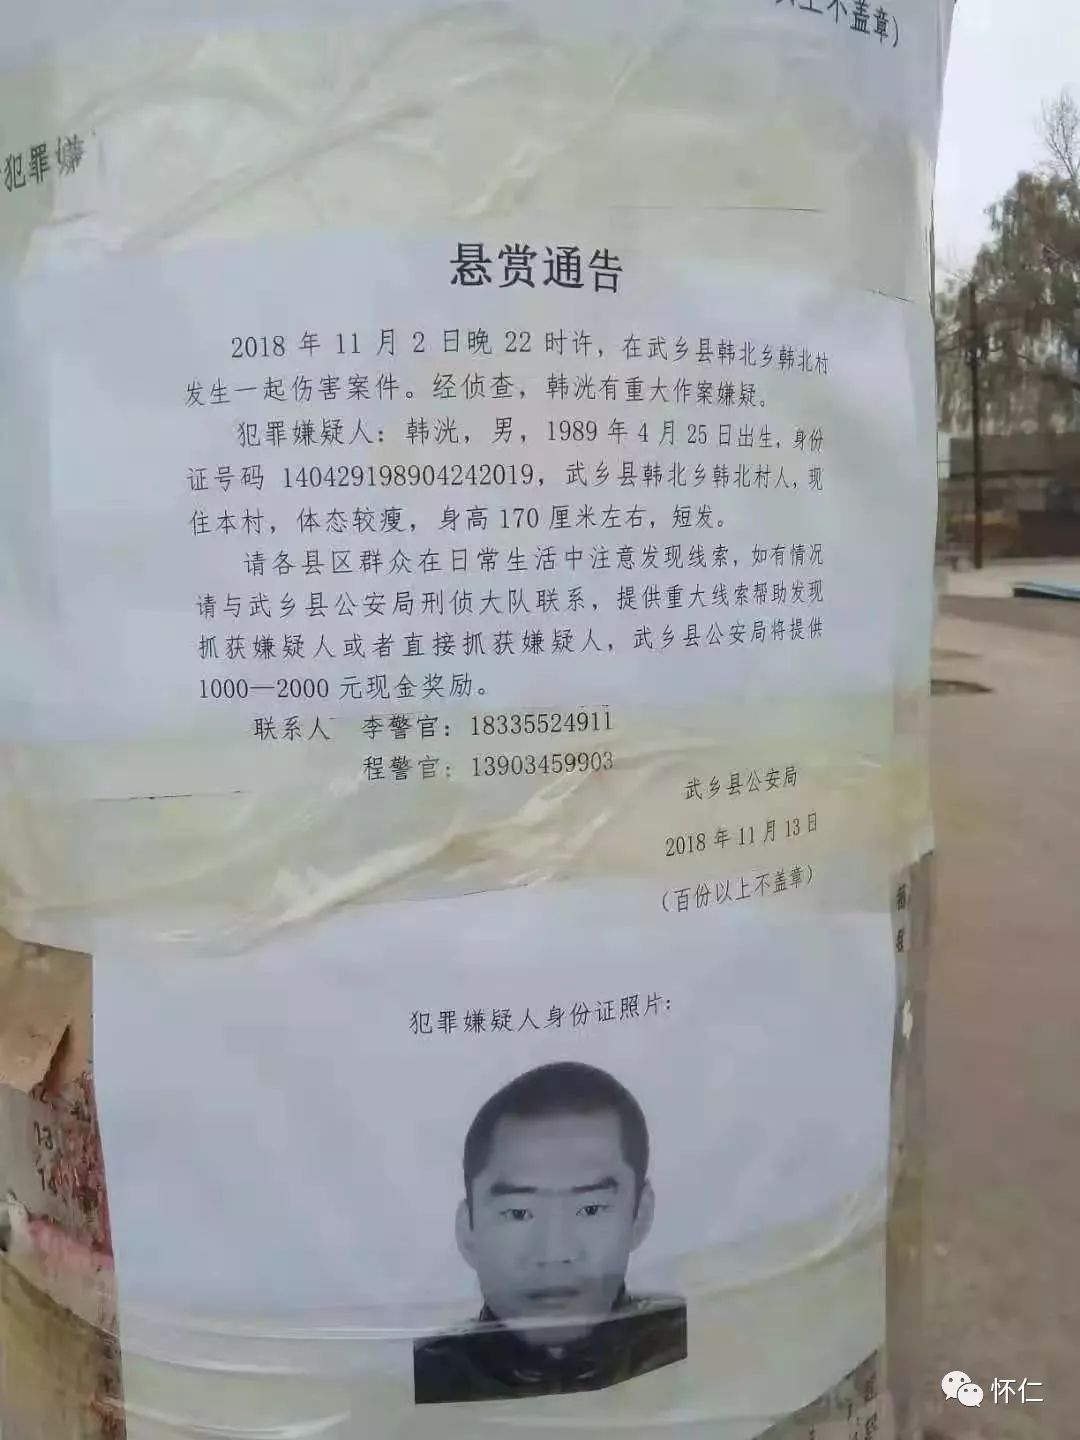 以上不盖章）
犯罪嫌
悬赏通告
2018 年 11 月 2 日晚 22 时许，在武乡县韩北乡韩北村
发生一起伤害案件。经侦查，韩洸有重大作案嫌疑。
犯罪嫌疑人：韩洸，男，1989 年 4 月 25 日出生，身份
证号码 140429198904242019，武乡县韩北乡韩北村人，现
住本村，体态较瘦，身高 170 厘米左右，短发。
请各县区群众在日常生活中注意发现线索，如有情况
请与武乡县公安局刑侦大队联系，提供重大线索帮助发现
抓获嫌疑人或者直接抓获嫌疑人，武乡县公安局将提供
1000—2000 元现金奖励。
联系人 李警官：18335524911
程警官：13903459903
武乡县公安局
2018 年 11 月 13 日
（百份以上不盖章）
犯罪嫌疑人身份证照片：
13
14
怀仁